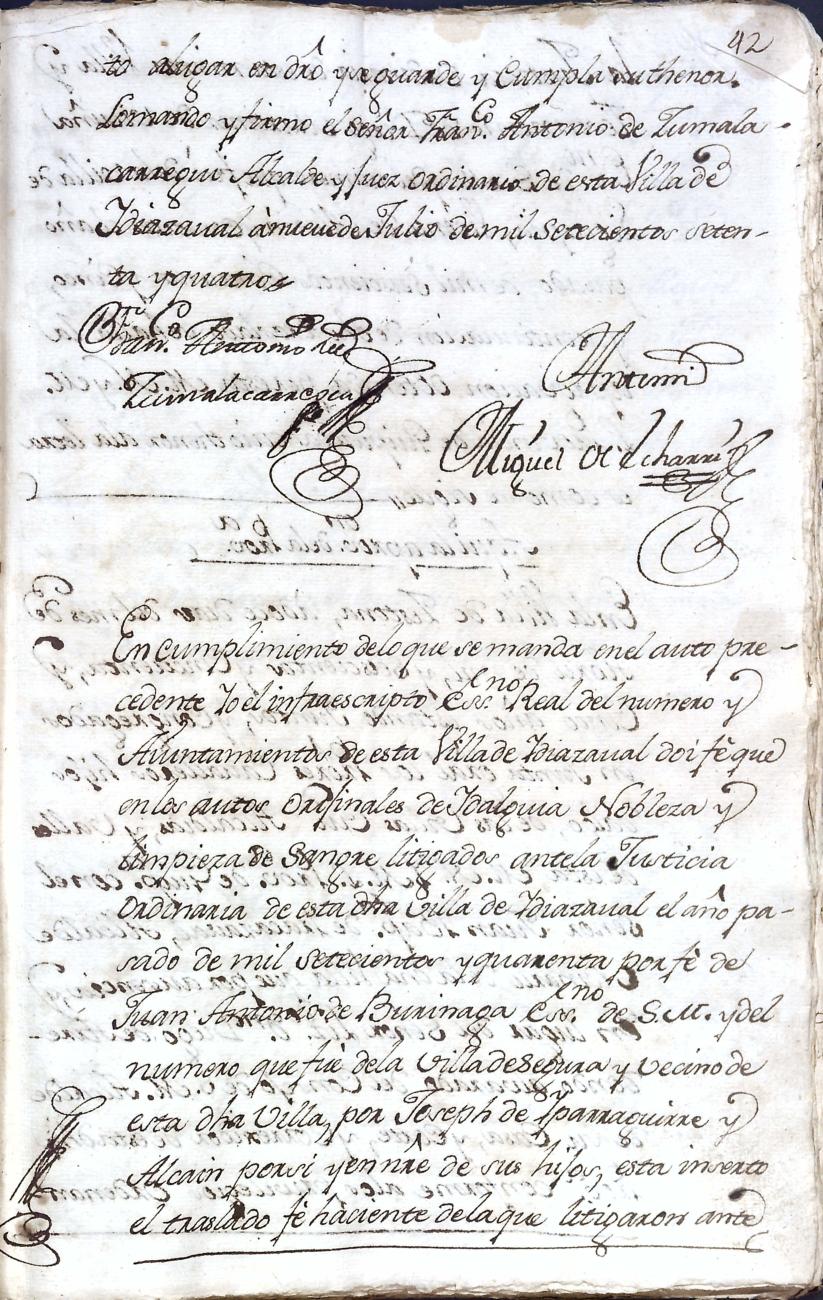 42
to alugar en dro y se guarde y Cumpla su thenor.
Lo mando y firmo el señor Fran.co Antonio de Zumala-
carregui Alcalde y Juez ordinario de esta Villa de
Idiazaval à nueve de Julio de mil Setecientos seten-
ta y quatro
Fran.co Antonio de
Zumalacarregui
Antemi
Miguel de Echarri
En Cumplimiento de lo que se manda en el auto pre-
cedente Yo el infraescripto Essno Real del numero y
Aiuntamientos de esta Villa de Idiazaval doi fè que
en los autos Orijinales de Idalguia Nobleza y
limpieza de Sangre litigados ante la Justicia
Ordinaria de esta dha Villa de Idiazaval el año pa-
sado de mil setecientos y quarenta por fè de
Juan Antonio de Burinaga Essno de S.M. y del
numero que fuè de la Villa de Segura y vecino de
esta dha Villa, por Joseph de Yparraguirre y
Alcain por si y en nre de sus hijos, esta inserto
el traslado fè haciente de la que litigaron ante